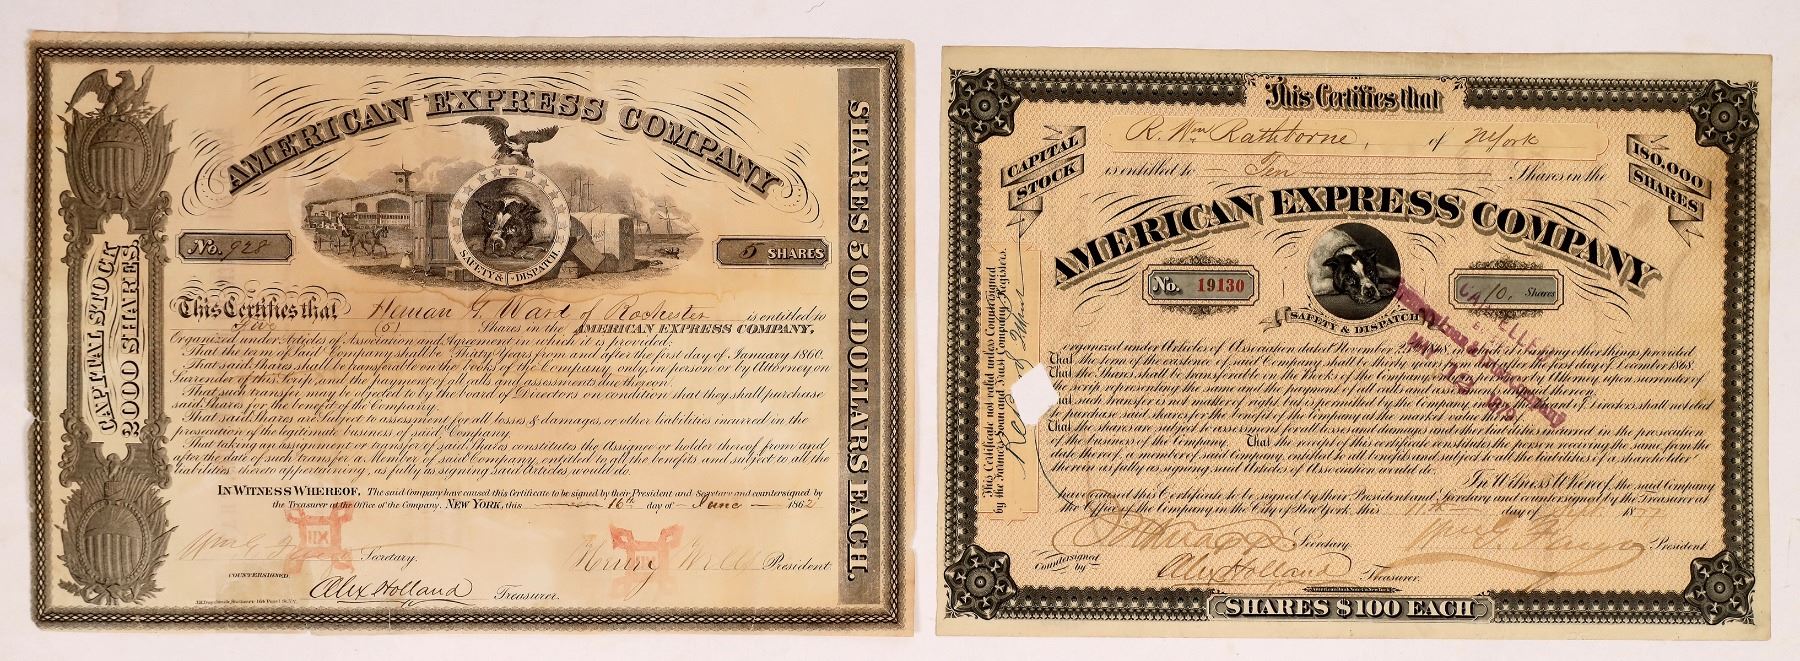 AMERICAN EXPRESS COMPANY
CAPITAL STOCK
2000 SHARES
SHARES 500 DOLLARS EACH.
SAFETY & DISPATCH
No. 928
5 SHARES
This Certifies that Heman G. Ward of Rochester is entitled to
Five (5) Shares in the AMERICAN EXPRESS COMPANY,
Organized under Articles of Association and Agreement in which it is provided;
That the term of said Company shall be Thirty Years from and after the first day of January 1860.
That said shares shall be transferable on the books of the Company, only, in person or by Attorney on
Surrender of this Scrip, and the payment of all calls and assessments due thereon.
That such transfer may be objected to by the board of Directors on condition that they shall purchase
said Shares for the benefit of the Company.
That said Shares are Subject to assessment for all losses & damages, or other liabilities incurred in the
prosecution of the legitimate business of said Company.
That taking an assignment or transfer of said Shares constitutes the Assignee or holder thereof from and
after the date of such transfer a Member of said Company, entitled to all the benefits and subject to all the
liabilities thereto appertaining, as fully as signing said Articles would do.
IN WITNESS WHEREOF, The said Company have caused this Certificate to be signed by their President and Secretary and countersigned by
the Treasurer at the Office of the Company. NEW YORK, this 16th day of June 1862
XII
XII
Wm G. Fargo Secretary.
Henry Wells President.
COUNTERSIGNED.
Alex Holland Treasurer.
This Certifies that
R. Wm Rathborne, of N York
CAPITAL STOCK
180.000 SHARES
is entitled to Ten Shares in the
AMERICAN EXPRESS COMPANY
No. 19130
10. Shares
SAFETY & DISPATCH
This Certificate not valid unless Countersigned
by the Farmers Loan and Trust Company, Registers.
organized under Articles of Association dated November 25th 1868, in which it is among other things provided
That the term of the existence of said Company shall be thirty years from and after the first day of December 1868.
That the Shares shall be transferable on the Books of the Company only in person or by Attorney, upon surrender of
the scrip representing the same and the payment of all calls and assessments thereon.
That such transfer is not matter of right, but is permitted by the Company, and the Board of Directors shall be allowed
to purchase said shares for the benefit of the Company at the market value.
That the shares are subject to assessment for all losses and damages and other liabilities incurred in the prosecution
of the business of the Company. That the receipt of this certificate constitutes the person receiving the same, from the
date thereof, a member of said Company, entitled to all the benefits and subject to all the liabilities of a shareholder
therein as fully as signing said Articles of Association would do.
In Witness Whereof, the said Company
have caused this Certificate to be signed by their President and Secretary and countersigned by the Treasurer at
the Office of the Company in the City of New York, this 11th day of 1877
Secretary
Wm G. Fargo President
Countersigned by Alex Holland Treasurer.
American Bank Note Co. New York
SHARES $100 EACH